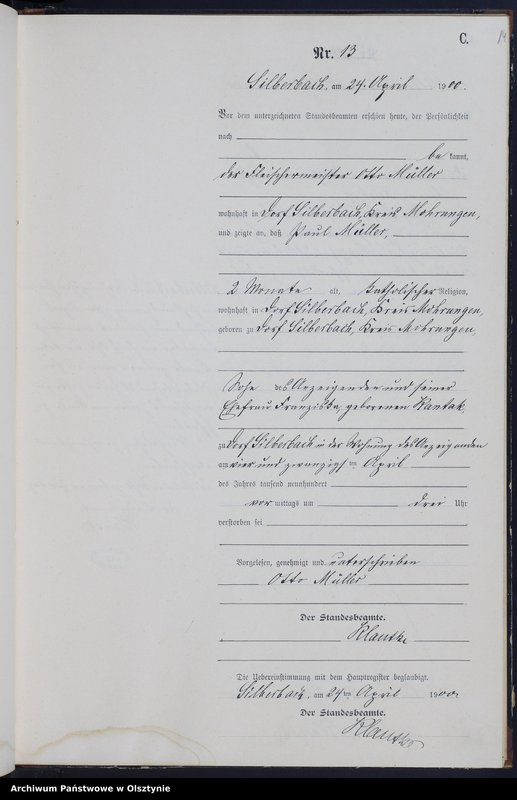 C.
14
Nr. 13
Silberbach, am 24. April 1900.
Vor dem unterzeichneten Standesbeamten erschien heute, der Persönlichkeit
nach
be kannt,
der Fleischermeister Otto Müller
wohnhaft in Dorf Silberbach, Kreis Mohrungen,
und zeigte an, daß Paul Müller,
2 Monate alt, katholischer Religion,
wohnhaft in Dorf Silberbach, Kreis Mohrungen,
geboren zu Dorf Silberbach, Kreis Mohrungen,
Sohn des Anzeigenden und seiner
Ehefrau Franziska, geborenen
zu Dorf Silberbach in der Wohnung des Anzeigenden
am vier und zwanzigsten April
des Jahres tausend neunhundert
vor mittags um drei Uhr
verstorben sei
Vorgelesen, genehmigt und unterschrieben
Otto Müller
Der Standesbeamte.
Die Uebereinstimmung mit dem Hauptregister beglaubigt.
Silberbach, am 24ten April 1900
Der Standesbeamte.
Archiwum Państwowe w Olsztynie